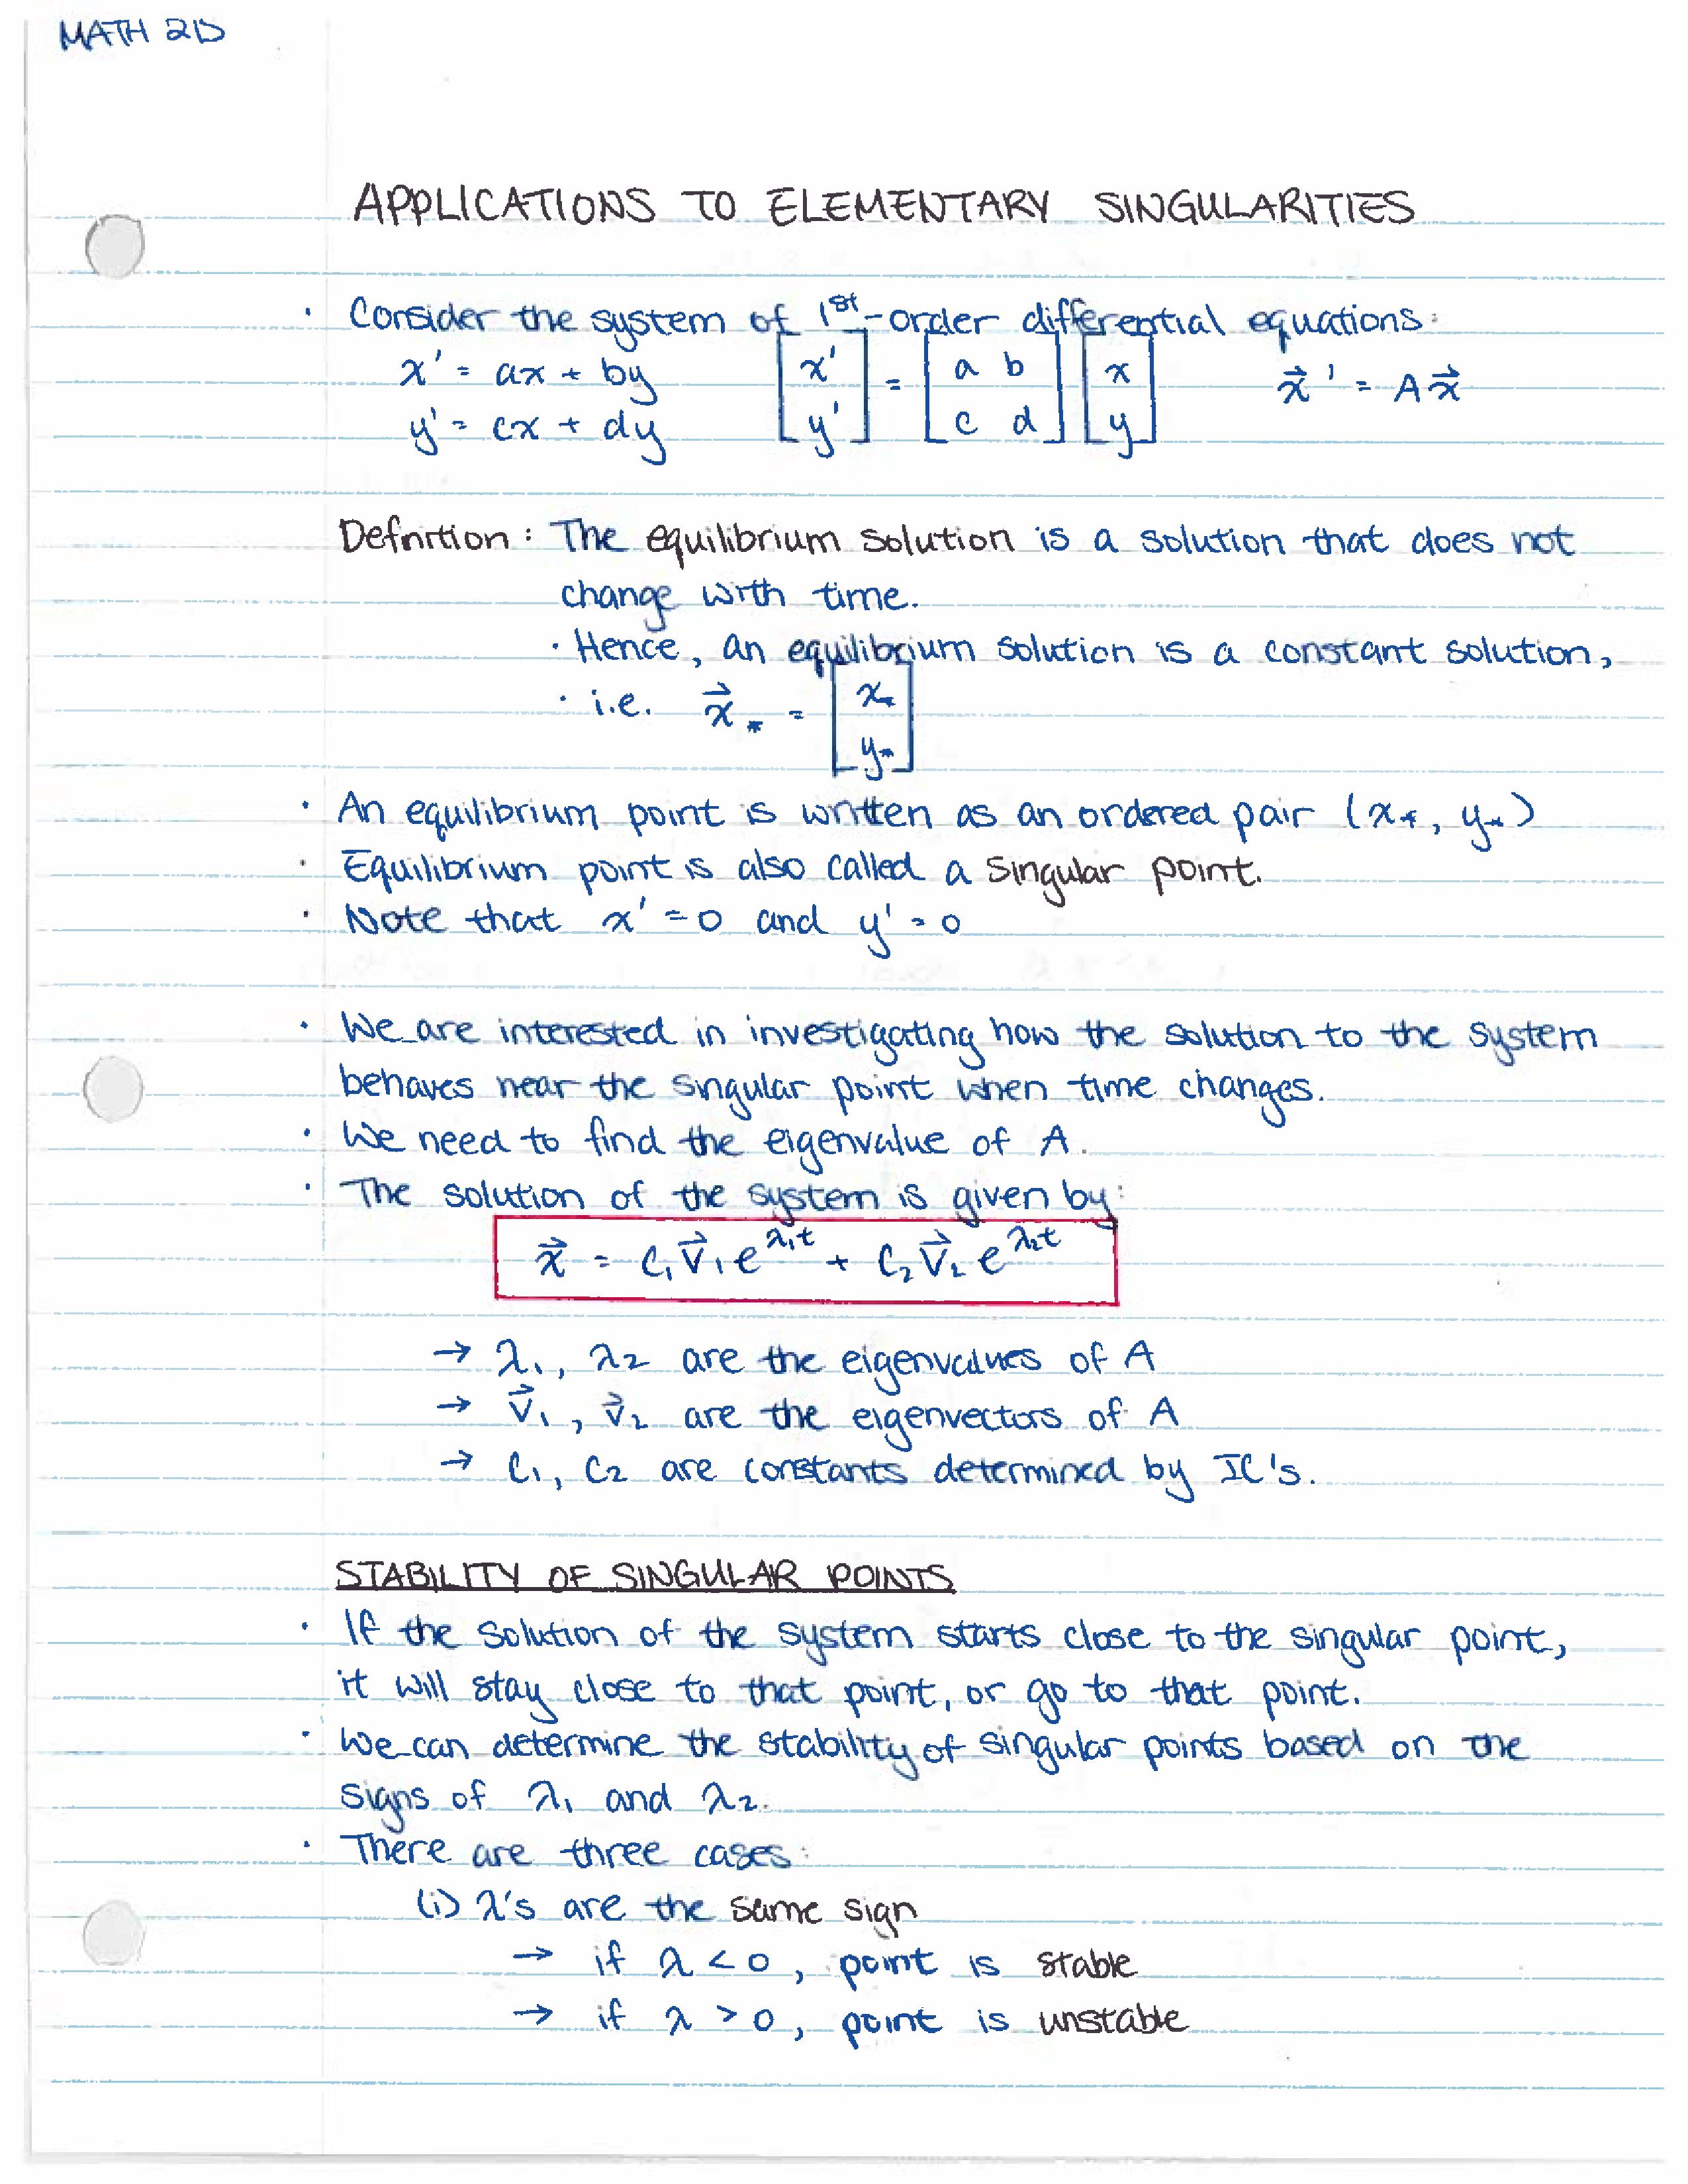 MATH 2D
APPLICATIONS TO ELEMENTARY SINGULARITIES
· Consider the system of 1st-order differential equations:
x' = ax + by   [x' y'] = [a b c d] [x y]   x⃗' = Ax⃗
y' = cx + dy
Definition: The equilibrium solution is a solution that does not
change with time.
· Hence, an equilibrium solution is a constant solution,
· i.e. x⃗* = [x* y*]
· An equilibrium point is written as an ordered pair (x*, y*)
· Equilibrium point is also called a singular point.
· Note that x' = 0 and y' = 0
· We are interested in investigating how the solution to the system
behaves near the singular point when time changes.
· We need to find the eigenvalue of A.
· The solution of the system is given by:
x⃗ = C₁v⃗₁e^λ₁t + C₂v⃗₂e^λ₂t
→ λ₁, λ₂ are the eigenvalues of A
→ v⃗₁, v⃗₂ are the eigenvectors of A
→ C₁, C₂ are constants determined by IC's.
STABILITY OF SINGULAR POINTS
· If the solution of the system starts close to the singular point,
it will stay close to that point, or go to that point.
· We can determine the stability of singular points based on the
signs of λ₁ and λ₂.
· There are three cases:
(i) λ's are the same sign
→ if λ < 0, point is stable
→ if λ > 0, point is unstable